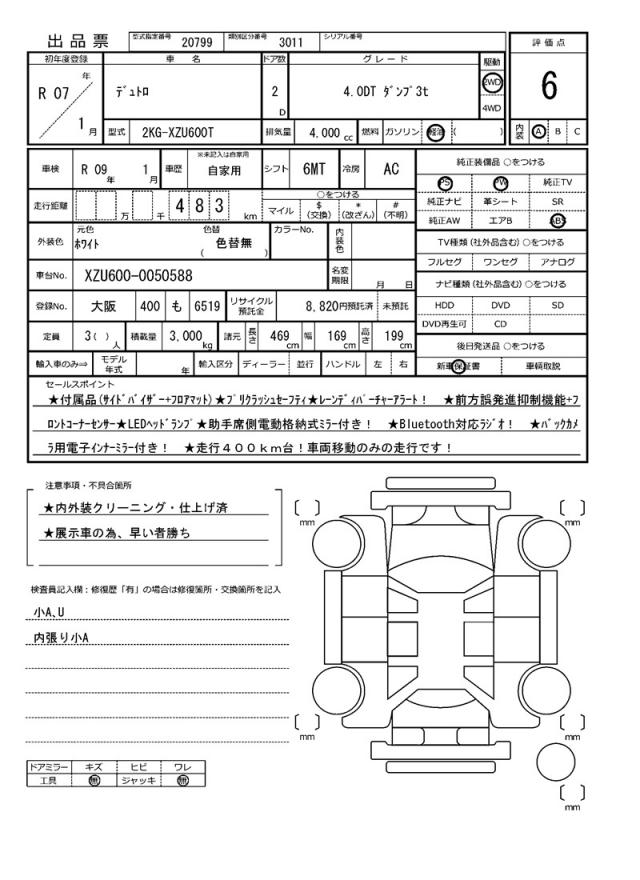 出品票
型式指定番号 20799 類別区分番号 3011 シリアル番号
初年度登録 車名 ドア数 グレード 駆動 評価点
R 07 年 1 月
デュトロ 2 D 4.0DT ダンプ3t 2WD 4WD 6
型式 2KG-XZU600T 排気量 4,000 cc 燃料 ガソリン 軽油 ( ) 内装 A B C
車検 R 09 年 1 月 車歴 ※未記入は自家用 自家用 シフト 6MT 冷房 AC
走行距離 万 千 483 km ○をつける マイル $(交換) *(改ざん) #(不明)
外装色 元色 ホワイト 色替 色替無 ( ) カラーNo. 内装色
車台No. XZU600-0050588 名変期限 月 日
登録No. 大阪 400 も 6519 リサイクル預託金 8,820円預託済 未預託
定員 3( ) 人 積載量 3,000 kg 諸元 長さ 469 cm 幅 169 cm 高さ 199 cm
輸入車のみ⇒ モデル年式 年 輸入区分 ディーラー 並行 ハンドル 左 右
純正装備品 ○をつける
PS PW 純正TV
純正ナビ 革シート SR
純正AW エアB ABS
TV種類 (社外品含む) ○をつける
フルセグ ワンセグ アナログ
ナビ種類 (社外品含む) ○をつける
HDD DVD SD
DVD再生可 CD
後日発送品 ○をつける
新車保証書 車輌取説
セールスポイント
★付属品(サイドバイザー+フロアマット)★プリクラッシュセーフティ★レーンディパーチャーアラート! ★前方誤発進抑制機能+フ
ロントコーナーセンサー★LEDヘッドランプ★助手席側電動格納式ミラー付き! ★Bluetooth対応ラジオ! ★バックカメ
ラ用電子インナーミラー付き! ★走行400km台!車両移動のみの走行です!
注意事項・不具合箇所
★内外装クリーニング・仕上げ済
★展示車の為、早い者勝ち
検査員記入欄:修復歴「有」の場合は修復箇所・交換箇所を記入
小A、U
内張り小A
ドアミラー キズ ヒビ ワレ
工具 無 ジャッキ 無
〔 〕 mm
〔 〕 mm
〔 〕 mm
〔 〕 mm
〔 〕 mm